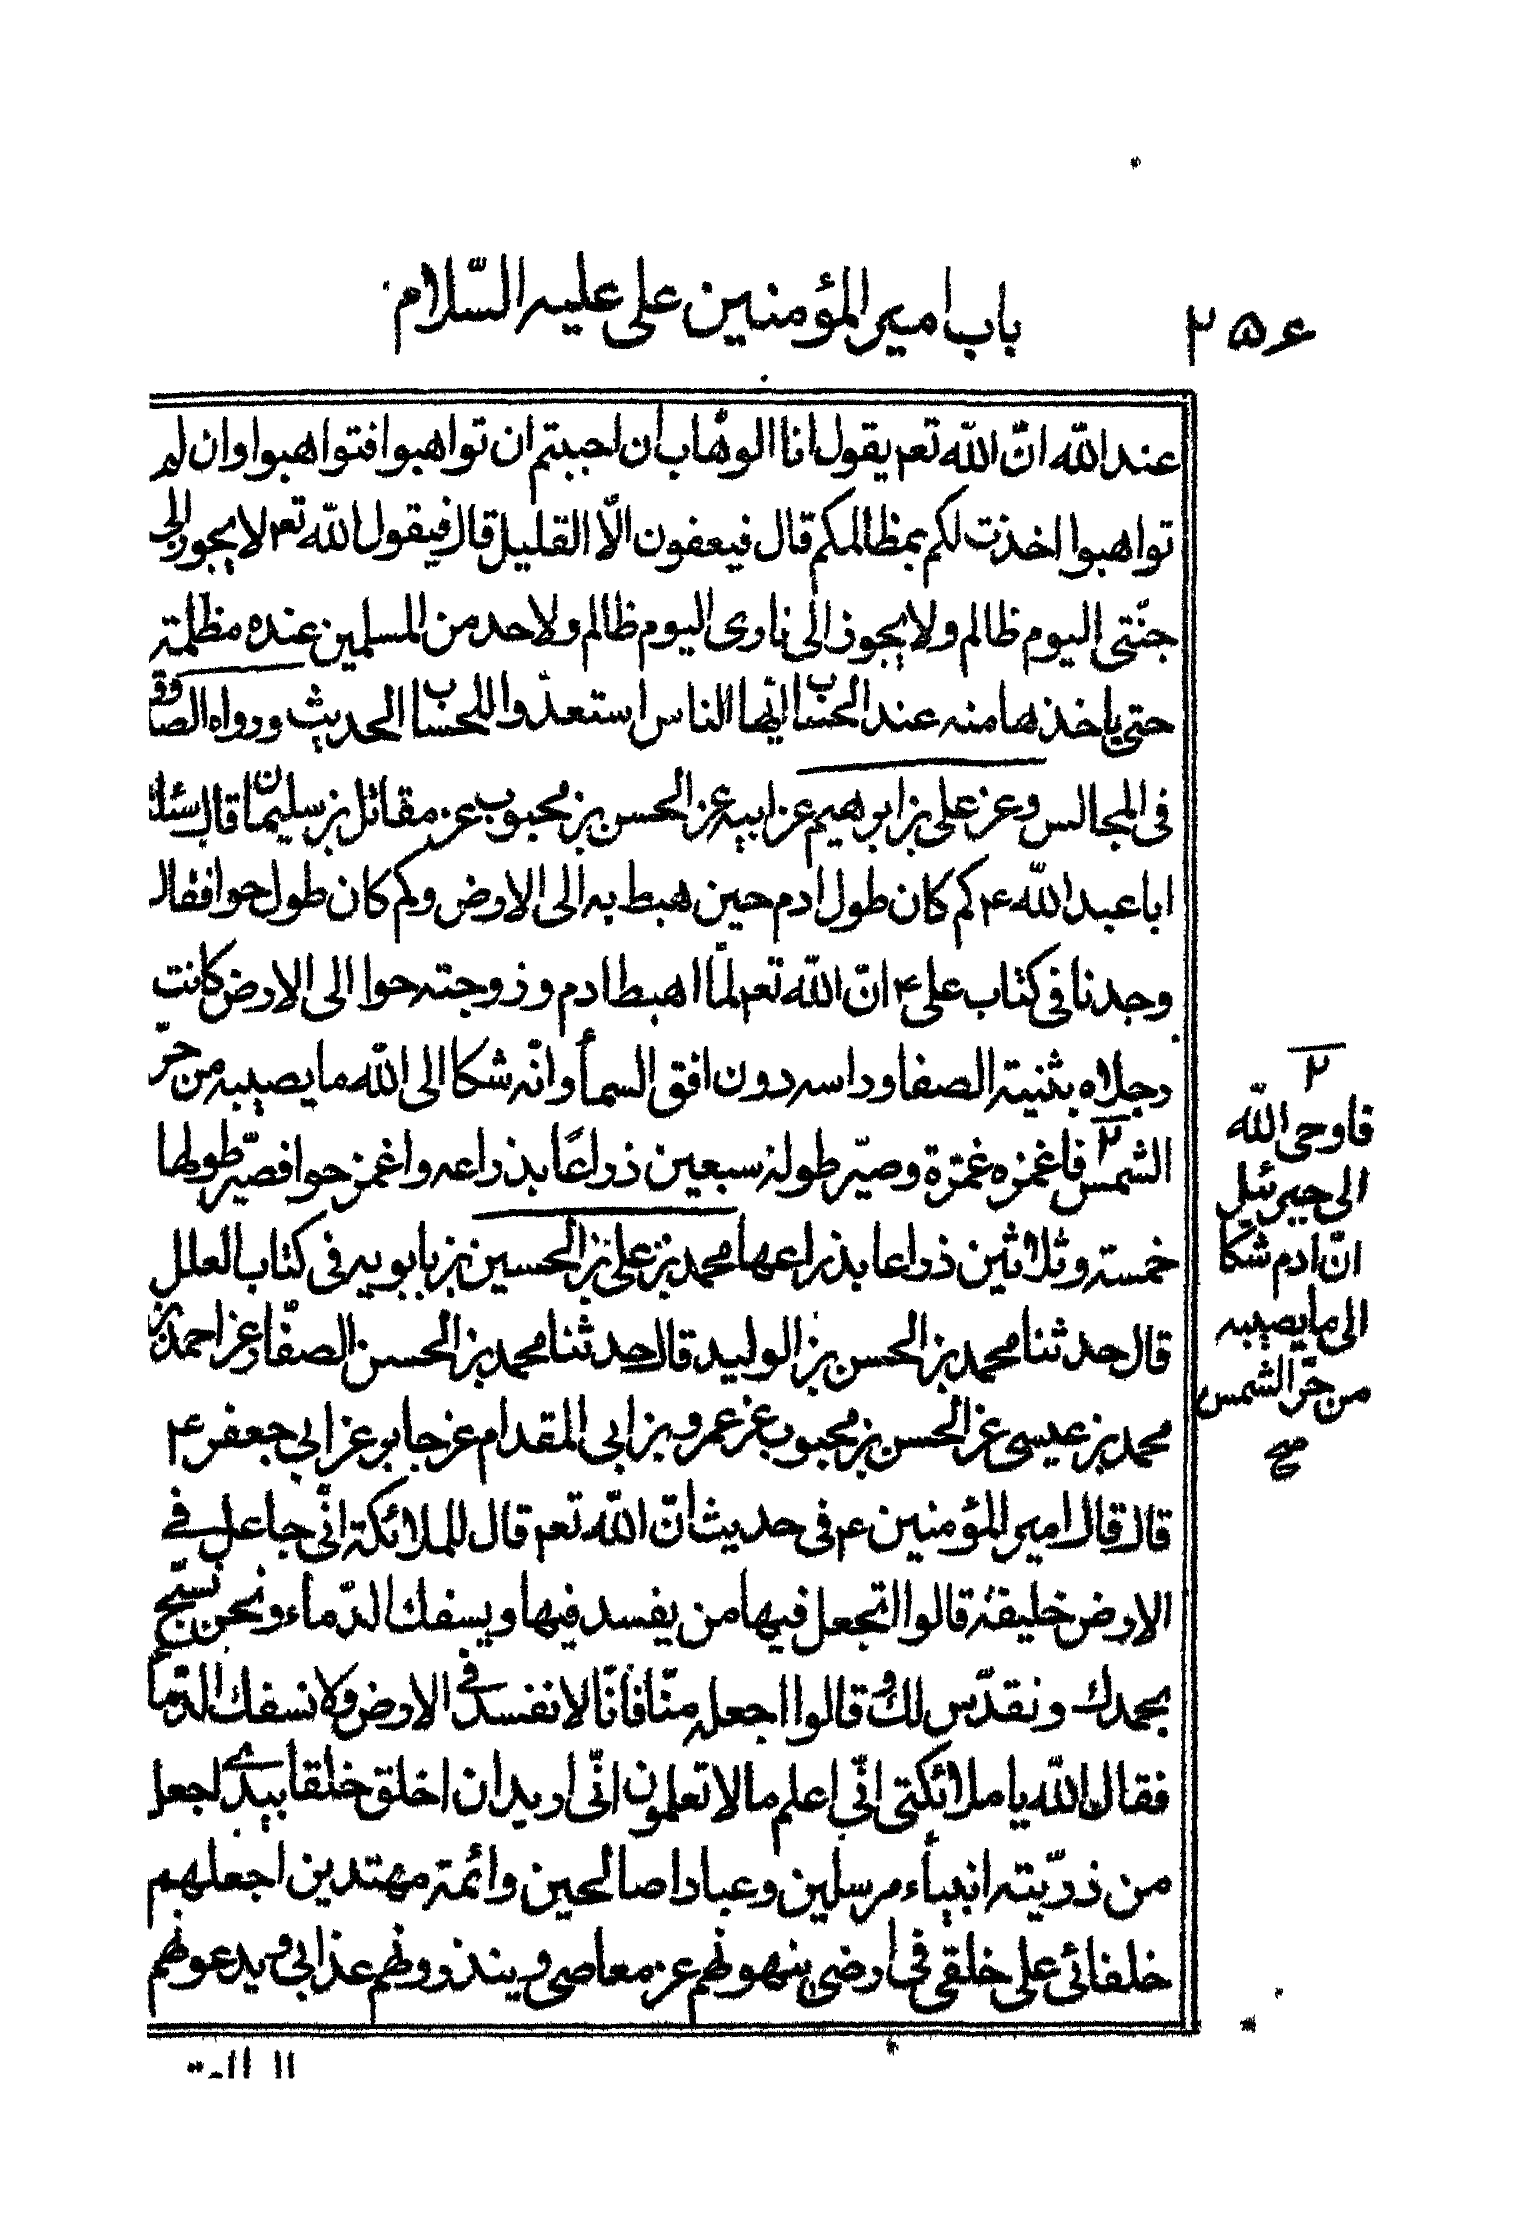 باب امير المؤمنين على عليه السّلام
۲۵۶
عند الله انّ الله تعم يقول انا الوهّاب ان احببتم ان تواهبوا فتواهبوا وان لم
تواهبوا اخذت لكم بمظالمكم قال فيعفون الّا القليل قال فيقول الله تعم لا يجوز الى
جنّتى اليوم ظالم ولا يجوز الى نارى اليوم ظالم ولاحد من المسلمين عنده مظلمته
حتى ياخذها منه عند الحساب ايّها الناس استعدّوا للحساب الحديث ورواه الصادق
فى المجالس وعن على بن ابرهيم عن ابيه عن الحسن بن محبوب عن مقاتل بن سليمان قال سئلت
ابا عبد الله ۴م كم كان طول ادم حين هبط به الى الارض وكم كان طول حوا فقال
وجدنا فى كتاب على ۴ انّ الله تعم لمّا اهبط ادم وزوجته حوا الى الارض كانت
رجلاه بثنية الصفا وراسه دون افق السمأ وانّه شكا الى الله ما يصيبه من حرّ
الشمس ۲ فاغمزه غمزة وصيّر طوله سبعين ذراعًا بذراعه واغمز حوا فصيّر طولها
خمسة وثلاثين ذراعا بذراعها محمد بن على بن الحسين بن بابويه فى كتاب العلل
قال حدثنا محمد بن الحسن بن الوليد قال حدثنا محمد بن الحسن الصفّار عن احمد بن
محمد بن عيسى عن الحسن بن محبوب عن عمرو بن ابى المقدام عن جابر عن ابى جعفر ۴م
قال قال امير المؤمنين ۴م فى حديث انّ الله تعم قال للملائكة انّى جاعل فى
الارض خليفة قالوا اتجعل فيها من يفسد فيها ويسفك الدّماء ونحن نسبّح
بحمدك ونقدّس لك وقالوا اجعله منّا فانّا لا نفسد فى الارض ولا نسفك الدّمأ
فقال الله يا ملائكتى انّى اعلم مالا تعلمون انّى اريد ان اخلق خلقا بيدى اجعل
من ذرّيته انبيأء مرسلين وعبادا صالحين وائمة مهتدين اجعلهم
خلفائى على خلقى فى ارضى ينهونهم عن معاصى وينذرونهم عذابى ويدعونهم
۲
فاوحى الله
الى جبرئيل
انّ ادم شكا
الى ما يصيبه
من حرّ الشمس
صح